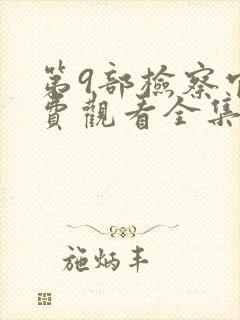 第9部檢察官
費觀看全集
施炳丰